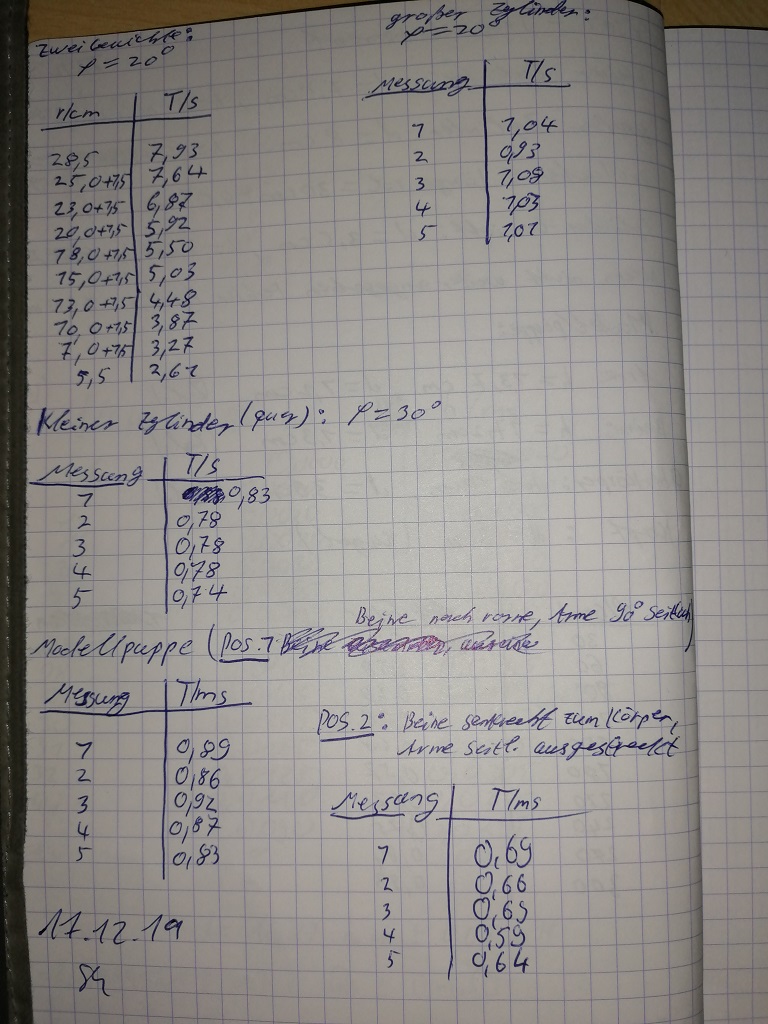 Zwei Gewichte:
φ=20°
r/cm T/s
28,5 7,93
25,0+1,5 7,64
23,0+1,5 6,87
20,0+1,5 5,92
18,0+1,5 5,50
15,0+1,5 5,03
13,0+1,5 4,48
10,0+1,5 3,87
7,0+1,5 3,27
5,5 2,61
großer Zylinder:
φ=20°
Messung T/s
1 1,04
2 0,93
3 1,09
4 1,03
5 1,01
Kleiner Zylinder (quer): φ=30°
Messung T/s
1 0,83
2 0,78
3 0,78
4 0,78
5 0,74
Beine nach vorne, Arme 90° seitlich)
Modellpuppe (Pos.1 Beine
Messung T/ms
1 0,89
2 0,86
3 0,92
4 0,87
5 0,83
Pos.2: Beine senkrecht zum Körper,
Arme seitl. ausgestreckt
Messung T/ms
1 0,69
2 0,66
3 0,65
4 0,59
5 0,64
17.12.19